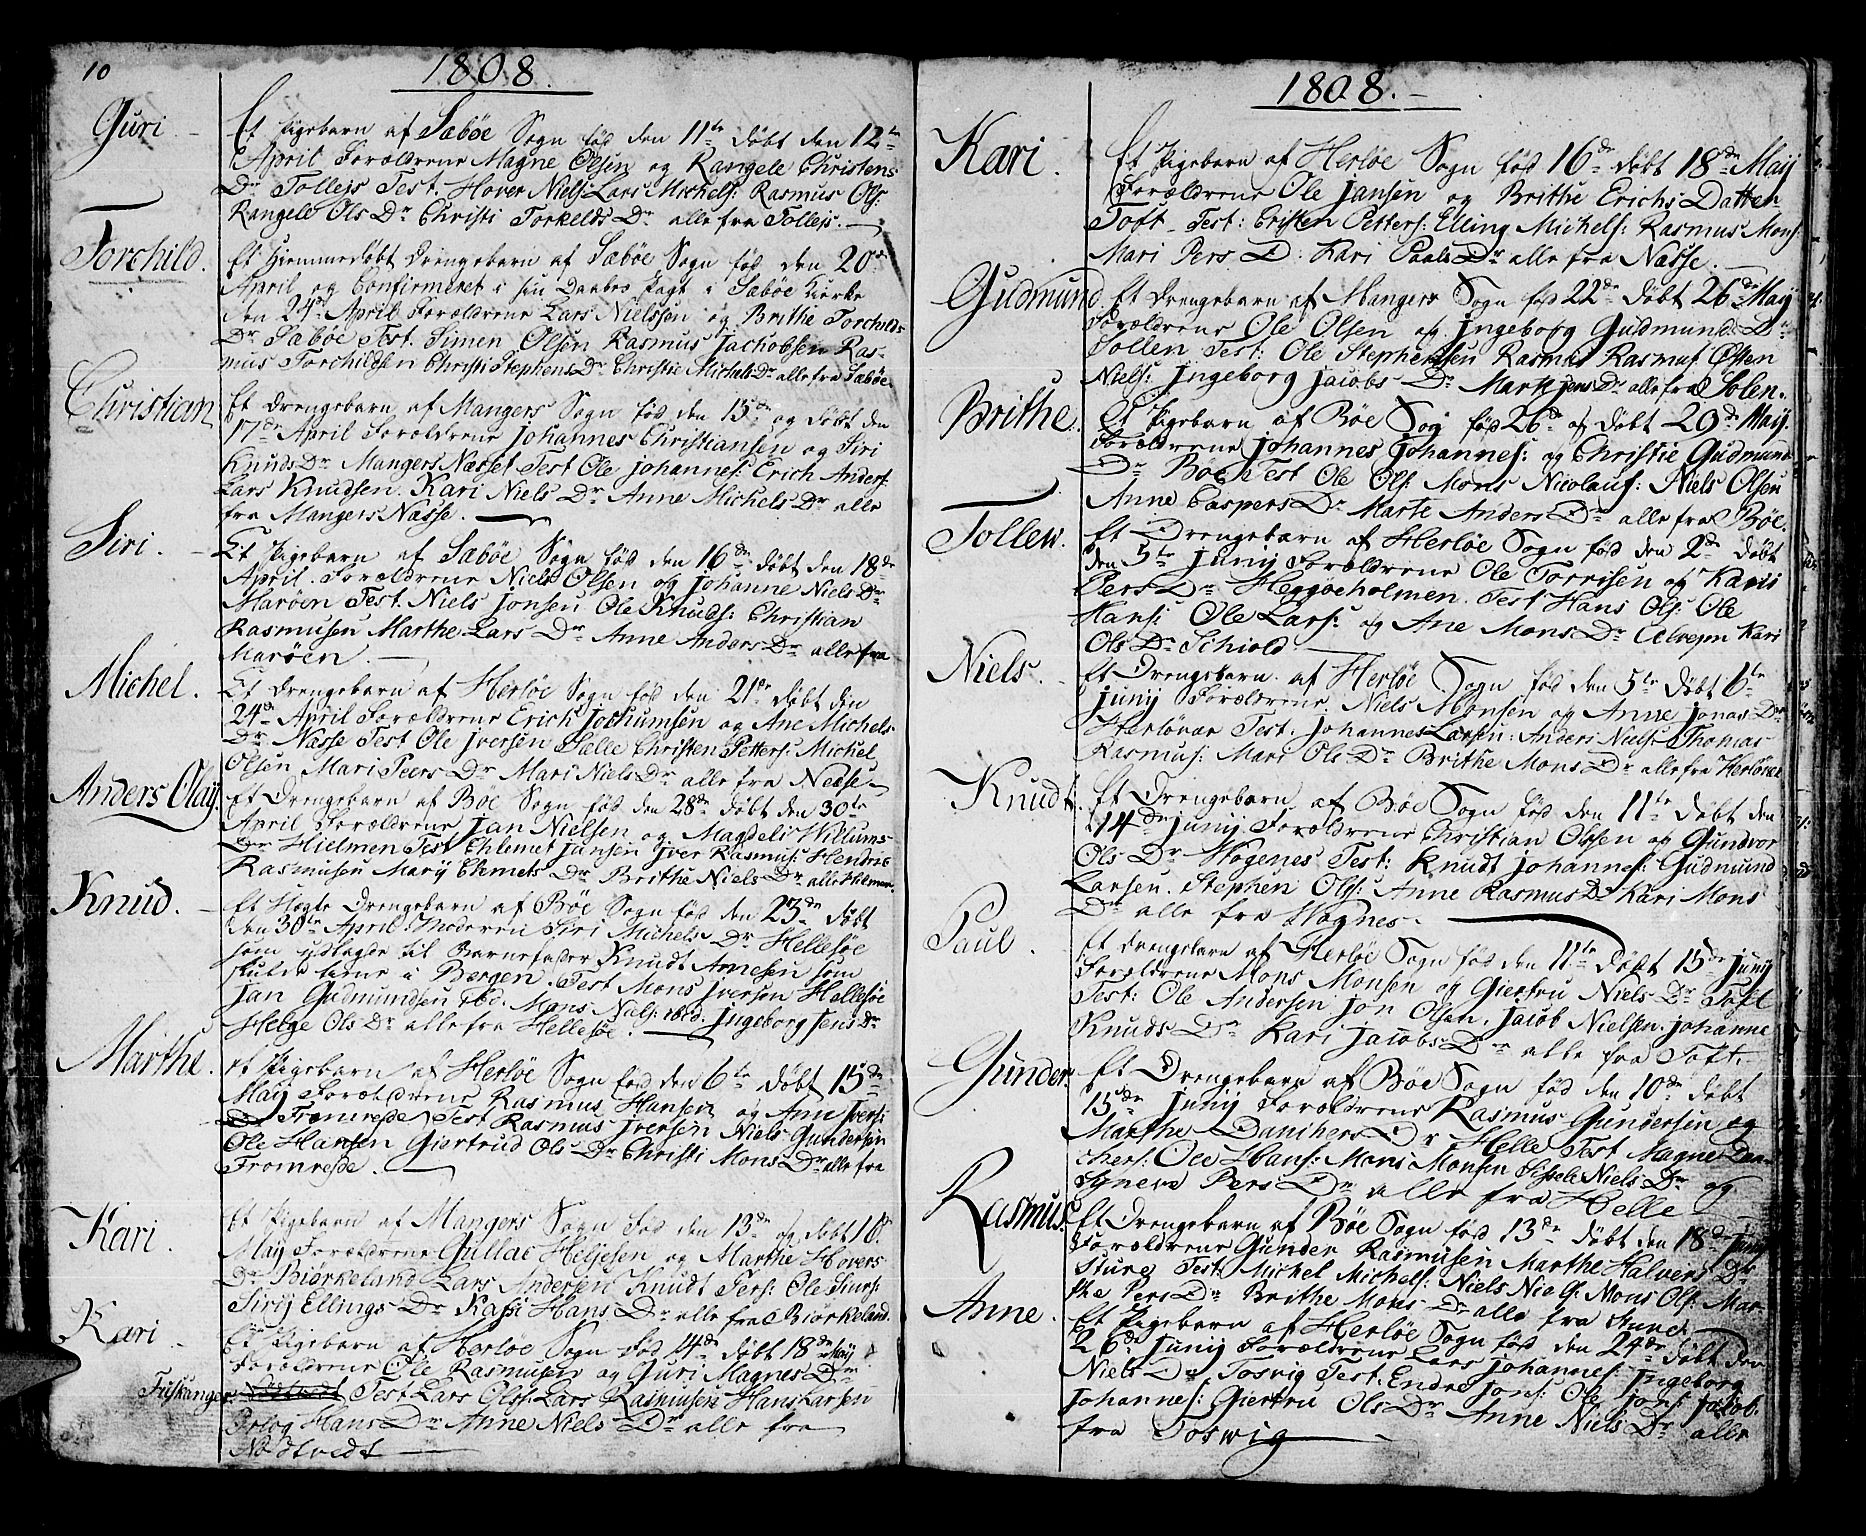 10
1808
Guri
Et Pigebarn af Sæbøe Sogn fød den 11te døbt den 12te
April Forældrene Magne Olsen og Rangele Christens
Dr Tollejs Test. Hover Niels: Lars Michels: Rasmus Ols:
Rangele Ols Dr Christi Torkelds Dr alle fra Tollejs.
Torchild.
Et Hiemmedøbt Drengebarn af Sæbøe Sogn fød den 20de
April og Confirmeret i sin Daabes Pagt i Sæbøe Kierke
den April Forældrene Lars Nielssen og Brithe Torchilds
Dr Sæbøe Test. Simen Olsen Rasmus Jachobsen Ras-
mus Torchildsen Christi Stephens Dr Christie Michels Dr alle fra Sæbøe
Christian
Et Drengebarn af Mangers Sogn fød den 15de og døbt den
17de April Forældrene Johannes Christiansen og Siri
Knuds Dr Mangers Næsset Test Ole Johannes: Erich Anders:
Lars Knudsen. Kari Niels Dr Anne Michels Dr alle
fra Mangers Næsse.
Siri.
Et Pigebarn af Sæbøe Sogn fød den 16de døbt den 18de
April. Forældrene Niels Olsen og Johanne Niels Dr
Marøen Test. Niels Jonsen Ole Knuds: Christian
Rasmusen Marthe Lars Dr Anne Anders Dr alle fra
Marøen
Michel.
Et Drengebarn af Herløe Sogn fød den 21de døbt den
24de April Forældrene Erick Jochumsen og Ane Michels
Dr Næsse Test Ole Iversen Sælle Christen Petters: Michel
Olsen Mari Peers Dr Mari Niels Dr alle fra Næsse
Anders Olaj
Et Drengebarn af Bøe Sogn fød den 28de døbt den 30te
April Forældrene Jan Nielsen og Magdeli Willums
Dr Hielmen Test Ehlemet Jansen Iver Rasmus: Hendric
Rasmusen Marij Ehmets Dr Brithe Niels Dr alle Hielmen
Knud.
Et Uægte Drengebarn af Bøe Sogn fød den 23de døbt
den 30te April Moderen Siri Michels Dr Hellesøe
som udlagde til Barnefader Knudt Arnesen som
skulde tiene i Bergen. Test Mons Iversen Hellesøe
Jan Gudmundsen ibd. Mons Nils: ibid: Ingeborg Jens Dr
Helge Ols Dr alle fra Hellesøe.
Marthe.
et Pigebarn af Herløe Sogn fød den 6te døbt 15de
Maij Forældrene Rasmus Hansen og Ane Ivers:
Dr Fromresde Test Rasmus Iversen Niels Gundersen
Ole Hansen Giertrud Ols Dr Christi Mons Dr alle fra
Fromresde.
Kari.
Et Pigebarn af Mangers Sogn fød den 13de og døbt
Maij Forældrene Gullac Heljesen og Marthe Hovers
Dr Biørkeland Lars Andersen Knudt Pers: Ole
Sirij Ellings Dr Kari Hans Dr alle fra Biørkeland.
Kari
Et Pigebarn af Herløe Sogn fød 14de døbt 18de Maij
Forældrene Ole Rasmusen og Guri Magnes Dr
Test Lars Ols: Lars Rasmusen Hans Larsen
Hans Dr Anne Niels Dr alle fra
Nødtvedt
1808.
Kari.
Et Pigebarn af Herløe Sogn fød 16de døbt 18de Maij
Forældrene Ole Jansen og Brithe Erichs Datter
Toft Test: Cristen Petters: Elling Michels: Rasmus Mons:
Mari Pers D. Kari Paals Dr alle fra Næsse.
Gudmund.
Et Drengebarn af Mangers Sogn fød 22de døbt 26de Maij
Forældrene Ole Olsen og Ingeborg Gudmunds Dr
Sollen Test: Ole Stephensen Rasmus Rasmus: Østen
Niels: Ingeborg Jacobs Dr Marte Jens Dr alle fra Solen.
Brithe.
Et Pigebarn af Bøe Sog fød 26de og døbt 29de Maij.
Forældrene Johannes Johannes: og Christie Gudmunds
Dr Boe Test Ole Ols: Mons Nicolaus: Niels Olsen
Anne Caspers Dr Marte Anders Dr alle fra Bøe.
Tollew.
Et Drengebarn af Herløe Sogn fød den 2de døbt
den 5te Junij Forældrene Ole Torrisen og Kari
Pers Dr Heggøeholmen. Test Hans Ols: Ole
Hans: Ole Lars: og Ane Mons Dr Kari
Ols Dr Schiold
Niels.
Et Drengebarn af Herløe Sogn fød den 5te døbt 6te
Junij Forældrene Niels Monsen og Anne Jonas Dr
Herløvær Test: Johannes Larsen: Anders Niels: Thomas
Rasmus: Mari Ols Dr Brithe Mons Dr alle fra Herløvær
Knudt.
Et Drengebarn af Bøe Sogn fød den 11te døbt den
14de Junij Forældrene Christian Olsen og Gundvor
Ols Dr Wognes Test: Knudt Johannes: Gudmund
Larsen. Stephen Ols: Anne Rasmus Dr Kari Mons
Dr alle fra Wognes.
Paul.
Et Drengebarn af Herløe Sogn fød den 11te døbt 15de Junij
Forældrene Mons Monsen og Giertru Niels Dr Toft
Test: Ole Andersen Jon Olsen. Jacob Nielsen. Johanne
Knuds Dr Kari Jacobs Dr alle fra Toft.
Gunder.
Et Drengebarn af Bøe Sogn fød den 10de døbt
15de Junij Forældrene Rasmus Gundersen og
Marthe Danchers Dr Helle Test Magne Dan-
chers: Ole Hans: Mons Monsen Sissele Niels Dr og
Pers Dr alle fra Helle
Rasmus.
Et Drengebarn af Bøe Sogn fød 13de døbt den 18de Junij
Forældrene Gunder Rasmusen Marthe Halvers Dr
Sture Test: Michel Michels: Niels Niels: Mons Ols: Mar-
the Pers Dr Brithe Mons Dr alle fra Sture.
Anne.
Et Pigebarn af Herløe Sogn fød den 24de døbt den
26de Junij Forældrene Lars Johannes: Ingeborg
Niels Dr Toswig Test. Endre Jons: Ole Jons: Jacob.
Johannes: Giertru Ols Dr Anne Niels Dr alle
fra Toswig